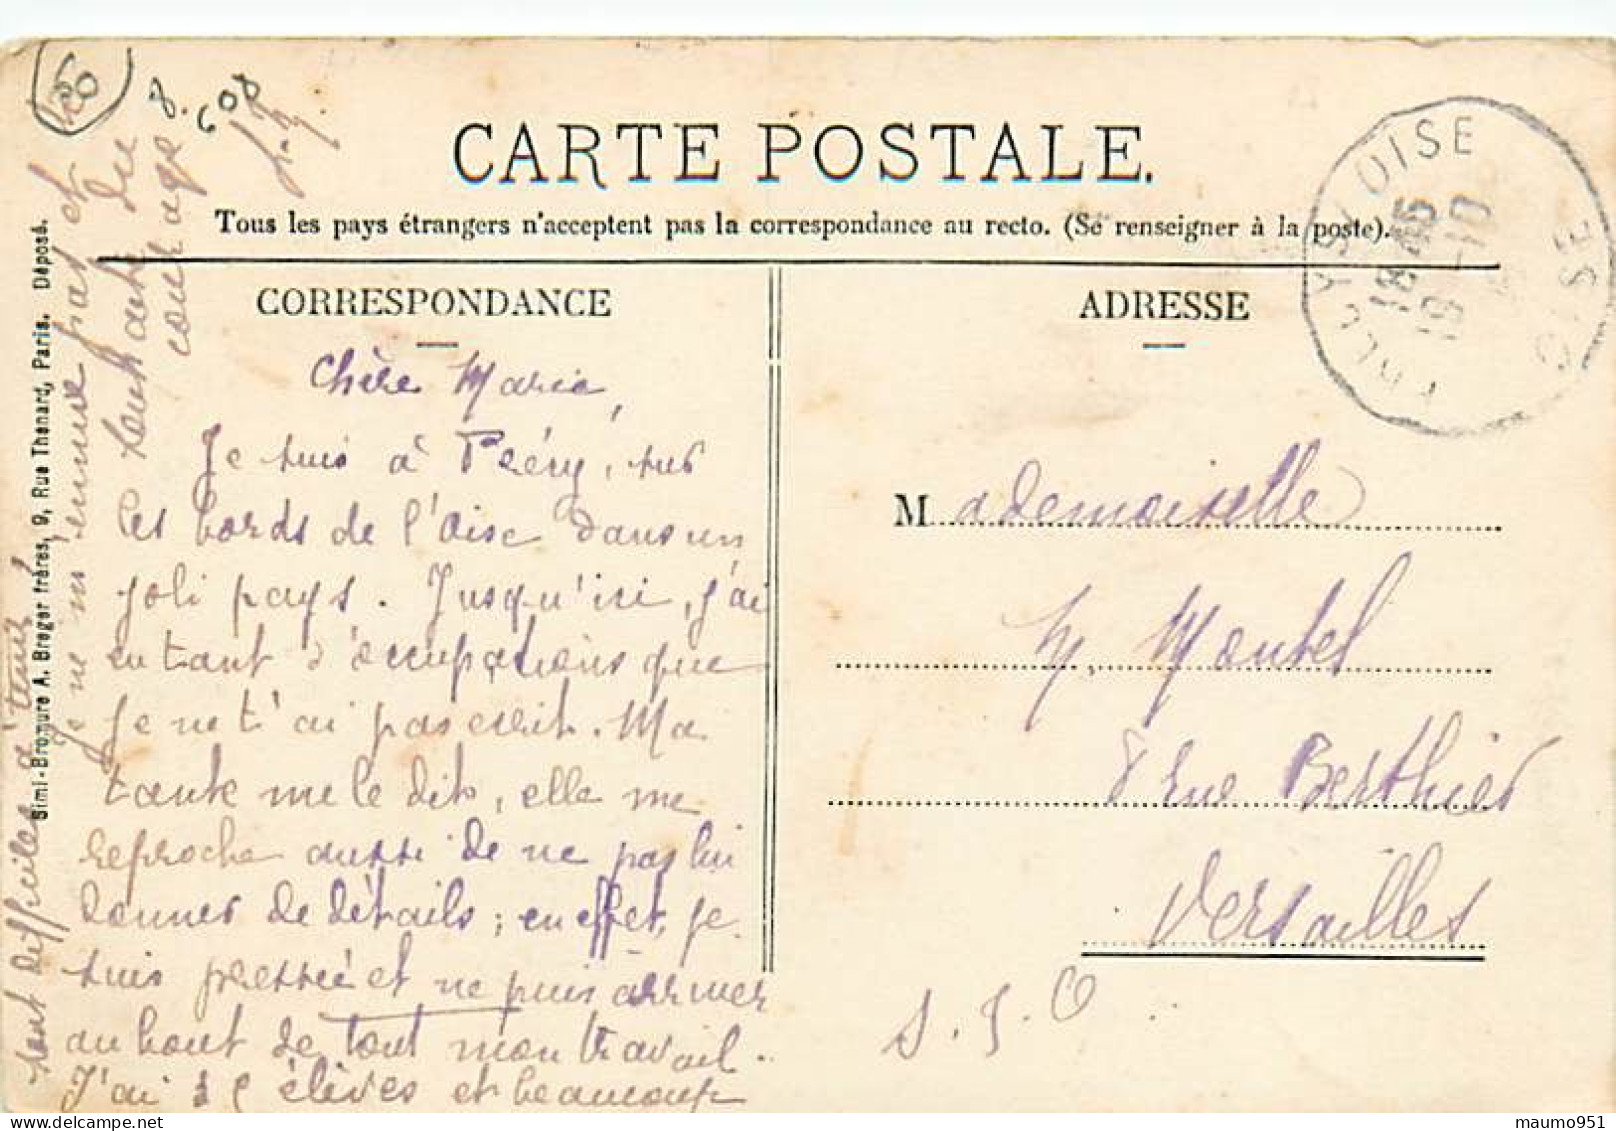 CARTE POSTALE.
Tous les pays étrangers n'acceptent pas la correspondance au recto. (Se renseigner à la poste).
CORRESPONDANCE
Chère Maria,
Je suis à Précy, sur
les bords de l'Oise dans un
joli pays. Jusqu'ici, j'ai
eu tant d'occupations que
je ne t'ai pas écrit. Ma
tante me le dit, elle me
reproche aussi de ne pas lui
donner de détails; en effet, je
suis pressée et ne puis arriver
au bout de tout mon travail.
J'ai élèves et beaucoup
sont difficiles à tenir
je ne m'ennuie pas et
souhaite du
courage
ADRESSE
Mademoiselle
M. Montel
8 rue Berthier
Versailles
S. I. O
OISE
18 45
19 -10
8.
608
60
Simi-Bromure A. Breger frères, 9, Rue Thenard, Paris. Déposé.
maumo951